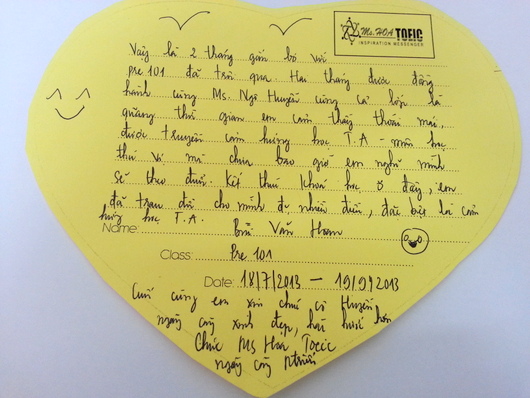 Ms. HOA TOEIC
INSPIRATION MESSENGER
Vậy là 2 tháng gắn bó với
Pre 101 đã trôi qua. Hai tháng được đồng
hành cùng Ms. Ngô Huyền cùng cả lớp là
quãng thời gian em cảm thấy thoải mái,
được truyền cảm hứng học T.A - môn học
thú vị mà chưa bao giờ em nghĩ mình
sẽ theo đuổi. Kết thúc khoá học ở đây, em
đã trau dồi cho mình đc nhiều điều, đặc biệt là cảm
hứng học T.A.
Name: Bùi Văn
Class: Pre 101
Date: 18/7/2013 - 19/9/2013
Cuối cùng em xin chúc cô Huyền
ngày càng xinh đẹp, hài hước hơn
Chúc Ms Hoa Toeic
ngày càng